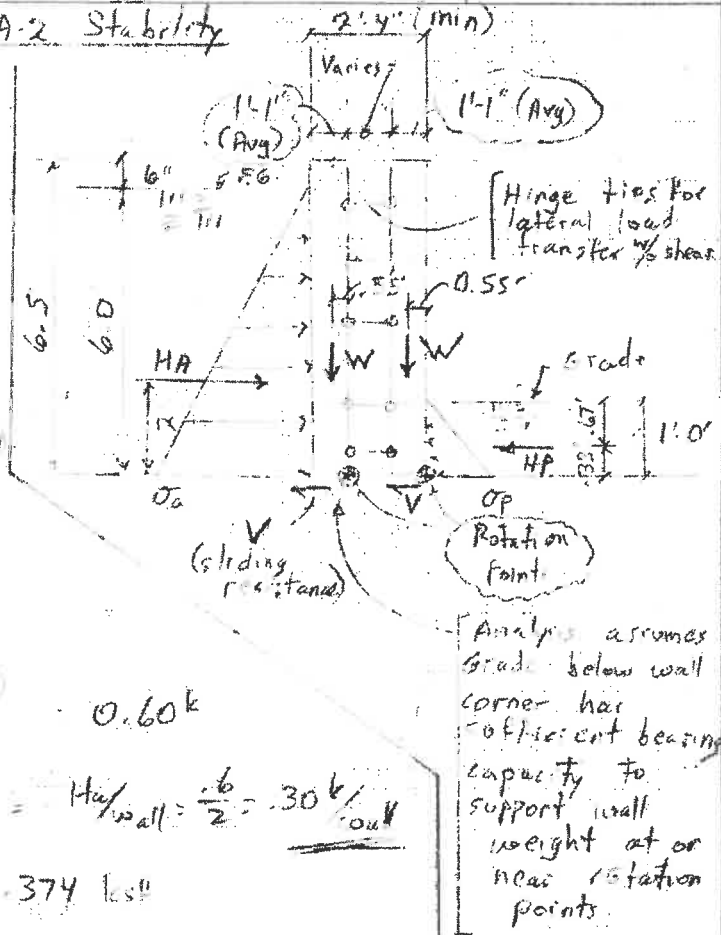 A-2 Stability
2'-4" (min)
Varies
1'-1"
(Avg)
1'-1" (Avg)
6"
Hinge ties for
lateral load
transfer w/o shear
0.55'
6.5
6.0
W
W
HA
Grade
.67'
.33'
1'.0'
HP
σa
σp
V
V
(sliding
resistance)
Rotation
Point
Analysis assumes
Grade below wall
corner has
sufficient bearing
capacity to
support wall
weight at or
near rotation
points
0.60k
= Ha/wall = .6/2 = .30 k/